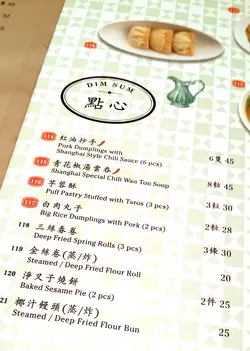 32
116
DIM SUM
點心
114 紅油抄手
Pork Dumplings with
Shanghai Style Chili Sauce (6 pcs) 6隻 45
115 青花椒湯雲吞
Shanghai Special Chili Wan Ton Soup 8粒 45
116 芋蓉酥
Puff Pastry Stuffed with Taros (3 pcs) 3粒 30
117 白肉丸子
Big Rice Dumplings with Pork (2 pcs) 2粒 28
118 三絲春卷
Deep Fried Spring Rolls (3 pcs) 3條 30
119 金絲卷(蒸/炸)
Steamed / Deep Fried Flour Roll 20
120 淨叉子燒餅
Baked Sesame Pie (2 pcs) 2件 25
21 椰汁饅頭(蒸/炸)
Steamed / Deep Fried Flour Bun 25